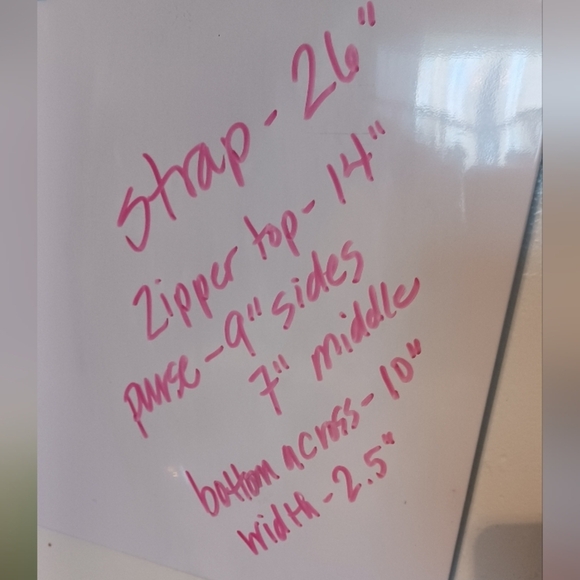 strap - 26"
Zipper top - 14"
purse - 9" sides
7" middle
bottom across - 10"
width - 2.5"